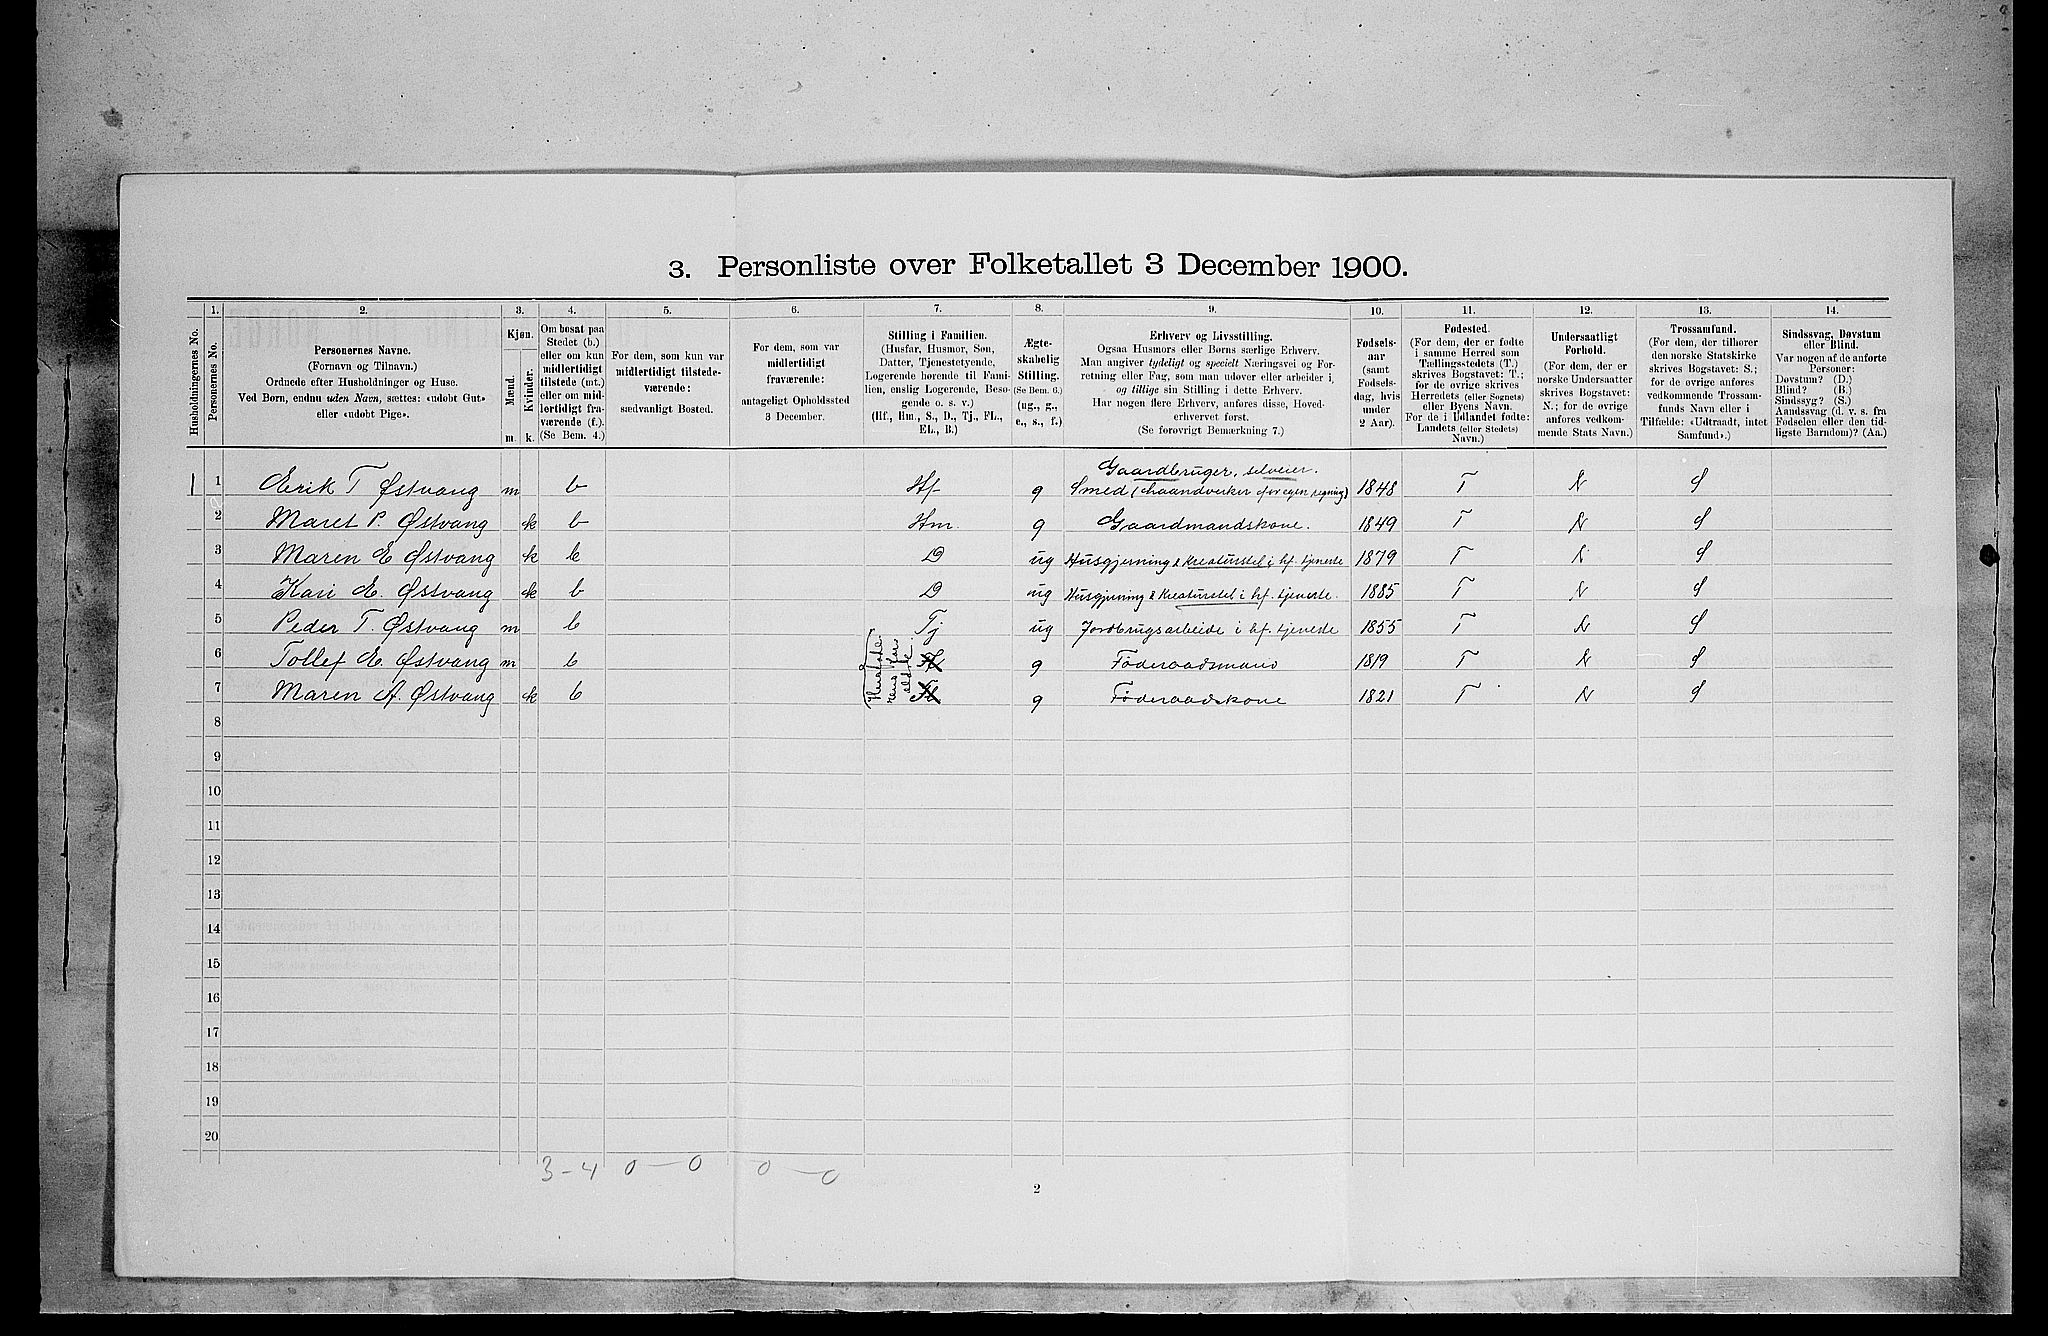 3. Personliste over Folketallet 3 December 1900.
Husholdningernes No.
1.
Personernes No.
2.
Personernes Navne.
(Fornavn og Tilnavn.)
Ordnede efter Husholdninger og Huse.
Ved Børn, endnu uden Navn, sættes: «udøbt Gut»
eller «udøbt Pige».
3.
Kjøn.
Mænd.
Kvinder.
m.
k.
4.
Om bosat paa
Stedet (b.)
eller om kun
midlertidigt
tilstede (mt.)
eller om mid-
lertidigt fra-
værende (f.).
(Se Bem. 4.)
5.
For dem, som kun var
midlertidigt tilstede-
værende:
sædvanligt Bosted.
6.
For dem, som var
midlertidigt
fraværende:
antageligt Opholdssted
3 December.
7.
Stilling i Familien.
(Husfar, Husmor, Søn,
Datter, Tjenestetyende,
Logerende hørende til Fami-
lien, enslig Logerende, Besø-
gende o. s. v.)
(Hf., Hm., S., D., Tj., FL.,
EL., B.)
8.
Ægte-
skabelig
Stilling.
(Se Bem. 6.)
(ug., g.,
e., s., f.)
9.
Erhverv og Livsstilling.
Ogsaa Husmors eller Børns særlige Erhverv.
Man angiver tydeligt og specielt Næringsvei og For-
retning eller Fag, som man udøver eller arbeider i,
og tillige sin Stilling i dette Erhverv.
Har nogen flere Erhverv, anføres disse, Hoved-
erhvervet først.
(Se forøvrigt Bemærkning 7.)
10.
Fødsels-
aar
(samt
Fødsels-
dag, hvis
under
2 Aar).
11.
Fødested.
(For dem, der er fødte
i samme Herred som
Tællingsstedets (T.)
skrives Bogstavet: T.;
for de øvrige skrives
Herredets (eller Sognets)
eller Byens Navn.
For de i Udlandet fødte:
Landets (eller Stedets)
Navn.)
12.
Undersaatligt
Forhold.
(For dem, der er
norske Undersaatter
skrives Bogstavet:
N.; for de øvrige
anføres vedkom-
mende Stats Navn.)
13.
Trossamfund.
(For dem, der tilhører
den norske Statskirke
skrives Bogstavet: S.;
for de øvrige anføres
vedkommende Trossam-
funds Navn eller i
Tilfælde: «Udtraadt, intet
Samfund».)
14.
Sindssvag, Døvstum
eller Blind.
Var nogen af de anførte
Personer:
Døvstum? (D.)
Blind? (B.)
Sindssyg? (S.)
Aandssvag (d. v. s. fra
Fødselen eller den tid-
ligste Barndom)? (Aa.)
Gaardbruger, selveier.
1 1 Erik T Østvang m b Hf g Smed (haandverker for egen regning) 1848 T N S
2 Maret P. Østvang k b Hm. g Gaardmandskone. 1849 T N S
3 Maren E Østvang k b D ug Husgjerning & kreaturstel i hf. tjeneste 1879 T N S
4 Kari E. Østvang k b D ug Husgjerning & kreaturstel i hf. tjeneste. 1885 T N S
5 Peder T. Østvang m b Tj ug Jordbrugsarbeide i hf. tjeneste 1855 T N S
6 Tollef E. Østvang m b g Føderaadsmand 1819 T N S
7 Maren A. Østvang k b g Føderaadskone 1821 T N S
8
9
10
11
12
13
14
15
16
17
18
19
20
3 - 4 0 - 0 0 - 0
2